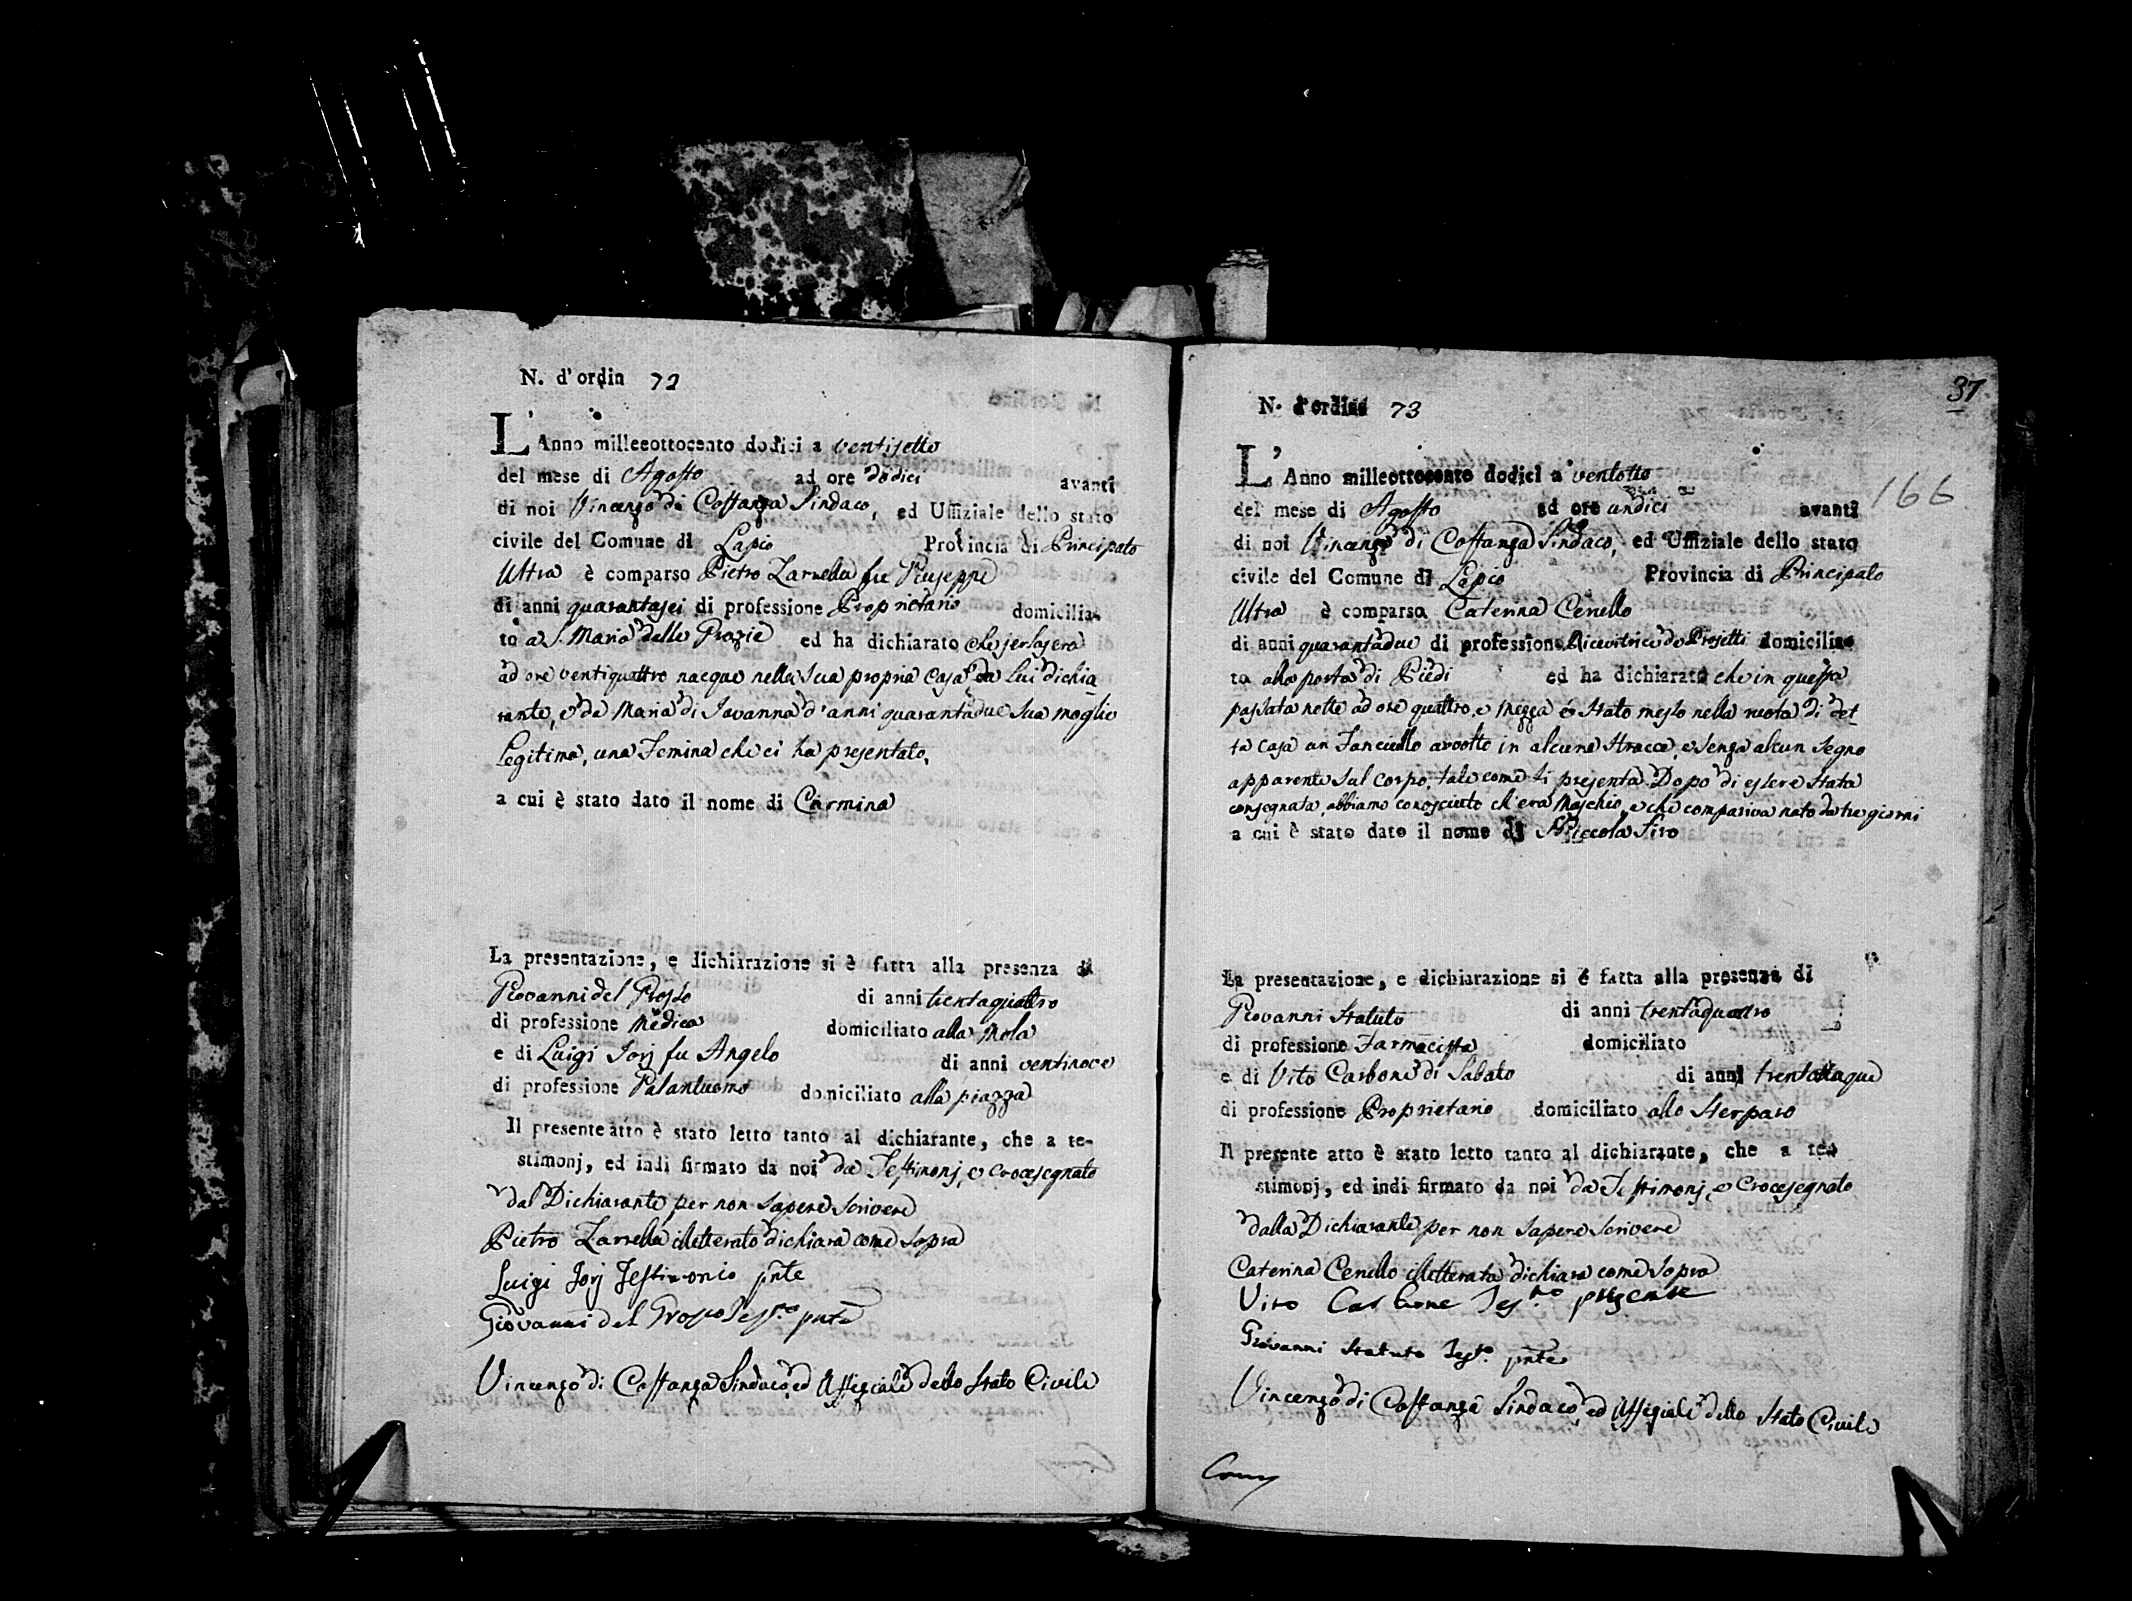 N. d'ordin 72
L'Anno milleeottocento dodici a ventisette
del mese di Agosto ad ore dodici avanti
di noi Vincenzo di Costanza Sindaco, ed Uffiziale dello stato
civile del Comune di Lapio Provincia di Principato
Ultra è comparso Pietro Zarrella fu Giuseppe
di anni quarantasei di professione Proprietario domicilia-
to a S. Maria delle Grazie ed ha dichiarato che jersera
ad ore ventiquattro nacque nella sua propria casa da lui dichia
rante, e da Maria di Iovanna d'anni quarantadue sua moglie
legitima, una Femina che ci ha presentato,
a cui è stato dato il nome di Carmina
La presentazione, e dichiarazione si è fatta alla presenza di
Giovanni del Grosso di anni trentaquattro
di professione Medico domiciliato alla Mola
e di Luigi Iorj fu Angelo di anni ventinove
di professione Galantuomo domiciliato alla piazza
Il presente atto è stato letto tanto al dichiarante, che a te-
stimonj, ed indi firmato da noi da Testimonj, e crocesegnato
dal Dichiarante per non sapere scrivere
Pietro Zarrella illetterato dichiara come sopra
Luigi Iorj Testimonio pnte
Giovanni del Grosso Test.o pnte
Vincenzo di Costanza Sindaco, ed Uffiziale dello Stato Civile
37
166
N. d'ordine 73
L'Anno milleottocento dodici a ventotto
del mese di Agosto ad ore undici avanti
di noi Vincenzo di Costanza Sindaco, ed Uffiziale dello stato
civile del Comune di Lapio Provincia di Principato
Ultra è comparsa Caterina Cenello
di anni quarantadue di professione Ricevitrice de Projetti domicilia-
ta alla porta di Piedi ed ha dichiarato che in questa
passata notte ad ore quattro, e mezza è stato messo nella ruota di det-
ta casa un Fanciullo avvolto in alcune stracce, e senza alcun segno
apparente sul corpo, tale come si presenta. Dopo di essere stata
consegnata, abbiamo conosciuto ch'era Maschio, e che compariva nato da tre giorni
a cui è stato dato il nome di Niccola Siro
La presentazione, e dichiarazione si è fatta alla presenza di
Giovanni Statuto di anni trentaquattro
di professione Farmacista domiciliato
e di Vito Carbone di Sabato di anni
di professione Proprietario domiciliato allo Sterparo
Il presente atto è stato letto tanto al dichiarante, che a te-
stimonj, ed indi firmato da noi da Testimonj, e Crocesegnato
dalla Dichiarante per non sapere scrivere
Caterina Cenello illetterata dichiara come sopra
Vito Carbone Tes.no presente
Giovanni Statuto Test.o pnte
Vincenzo di Costanza Sindaco, ed Uffiziale dello Stato Civile